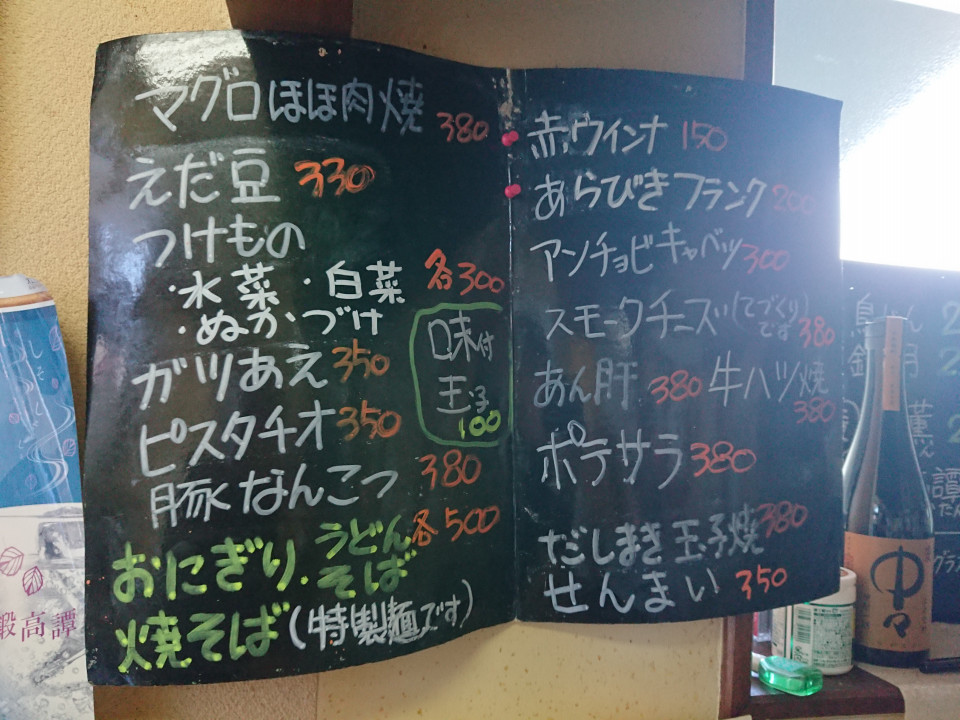 マグロほほ肉焼 380
えだ豆 330
つけもの
・水菜・白菜 各300
・ぬかづけ
味付
玉子
100
ガツあえ 350
ピスタチオ 350
豚なんこつ 380
おにぎり・うどん 各500
そば
焼そば(特製麺です)
赤ウインナ 150
あらびきフランク 200
アンチョビキャベツ 300
スモークチーズ(てづくり
です 380
あん肝 380 牛ハツ焼
380
ポテサラ 380
だしまき玉子焼 380
せんまい 350
鍛高譚
中々